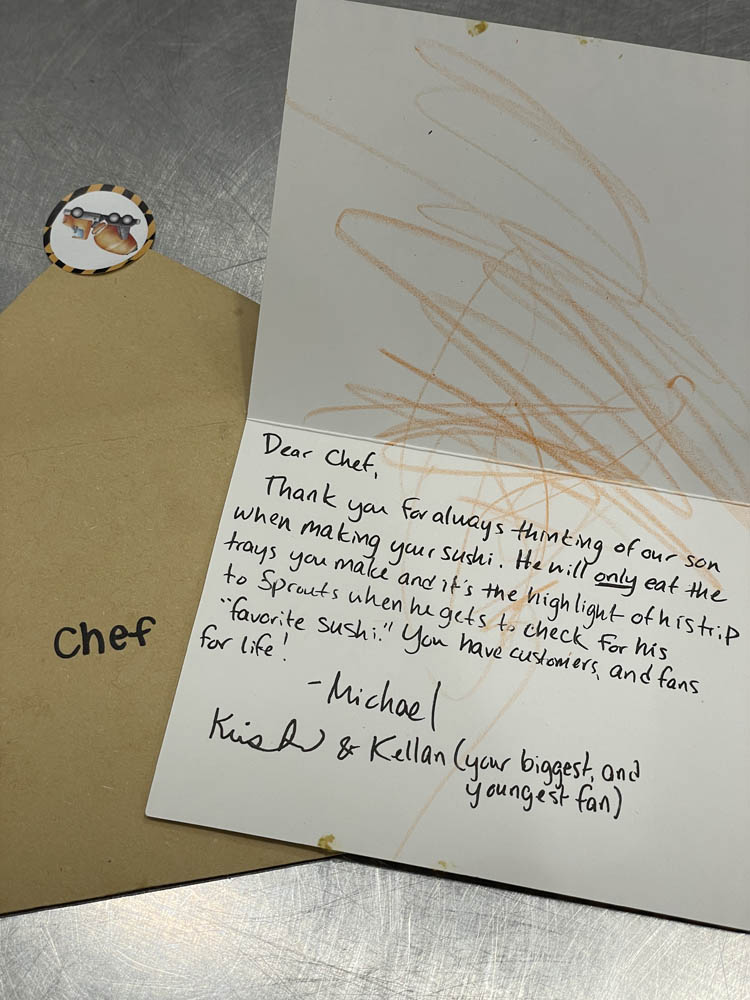 Dear Chef,
Thank you for always thinking of our son
when making your sushi. He will only eat the
trays you make and it's the highlight of his trip
to Sprouts when he gets to check for his
"favorite sushi." You have customers, and fans
for life!
-Michael
& Kellan (your biggest, and
youngest fan)
Chef